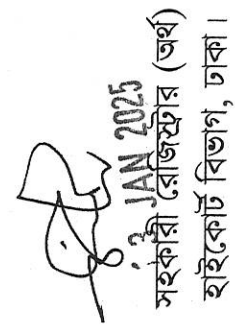 3 JAN 2025
সহকারী রেজিস্ট্রার (অর্থ)
হাইকোর্ট বিভাগ, ঢাকা।